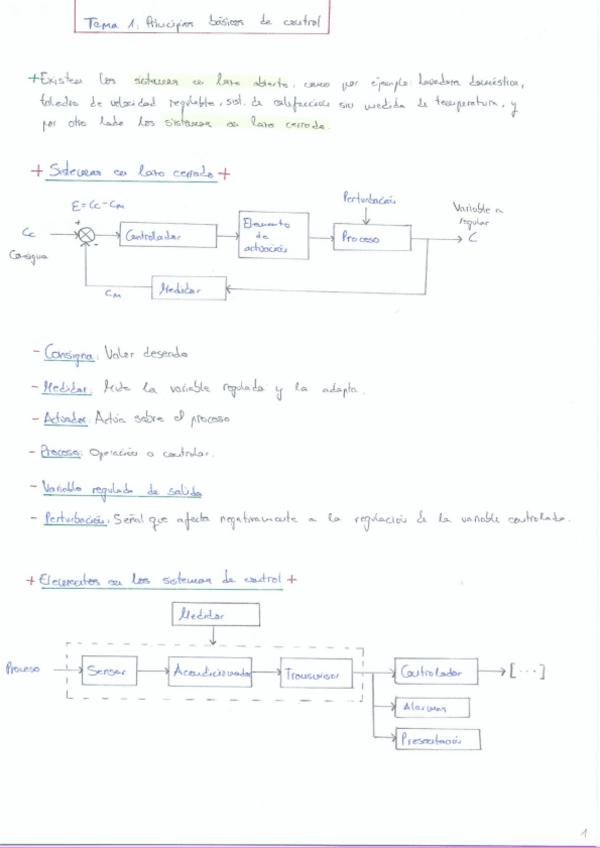 Tema 1: Principios básicos de control
+Existen los sistemas en lazo abierto, como por ejemplo: lavadora doméstica,
taladro de velocidad regulable, sist. de calefacción sin medida de temperatura, y
por otro lado los sistemas en lazo cerrado.
+ Sistemas en lazo cerrado +
E=Cc-CM
Perturbación
Variable a
regular
Cc
+
-
Controlador
Elemento
de
actuación
Proceso
C
Consigna
CM
Medidor
- Consigna: Valor deseado
- Medidor: Mide la variable regulada y la adapta.
- Actuador: Actúa sobre el proceso
- Proceso: Operación a controlar.
- Variable regulada de salida
- Perturbación: Señal que afecta negativamente a la regulación de la variable controlada.
+ Elementos en los sistemas de control +
Medidor
Proceso
Sensor
Acondicionador
Transmisor
Controlador
[...]
Alarmas
Presentación
1